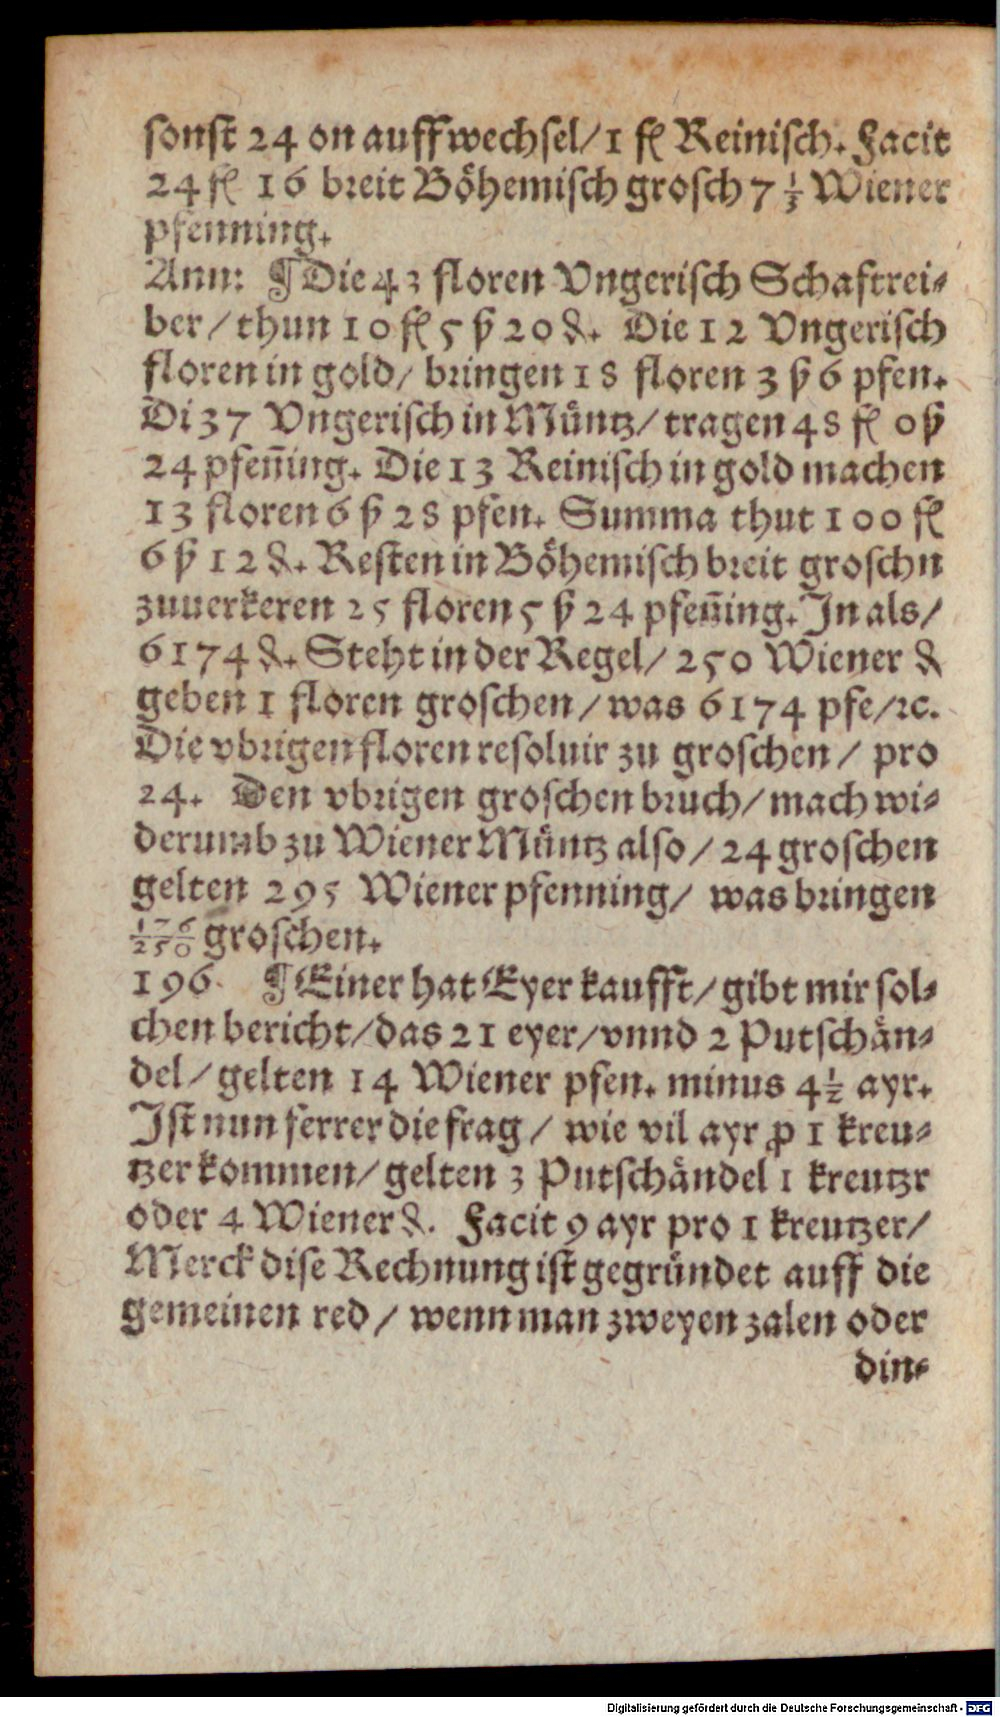 sonst 24 on auffwechsel/ 1 fl Reinisch. Facit
24 fl 16 breit Böhemisch grosch 7 1/3 Wiener
pfenning.
Ann: ¶ Die 43 floren Vngerisch Schaftrei⸗
ber/ thun 10 fl 5 ß 20 ₰. Die 12 Vngerisch
floren in gold/ bringen 18 floren 3 ß 6 pfen.
Di 37 Vngerisch in Müntz/ tragen 48 fl 0 ß
24 pfen̄ing. Die 13 Reinisch in gold machen
13 floren 6 ß 28 pfen. Summa thut 100 fl
6 ß 12 ₰. Resten in Böhemisch breit groschn
zuuerkeren 25 floren 5 ß 24 pfen̄ing. In als/
6174 ₰. Steht in der Regel/ 250 Wiener ₰
geben 1 floren groschen/ was 6174 pfe/ꝛc.
Die vbrigen floren resoluir zu groschen/ pro
24. Den vbrigen groschen bruch/ mach wi⸗
derumb zu Wiener Müntz also/ 24 groschen
gelten 295 Wiener pfenning/ was bringen
176/250 groschen.
196. ¶ Einer hat Eyer kaufft/ gibt mir sol⸗
chen bericht/ das 21 eyer/ vnnd 2 Putschän⸗
del/ gelten 14 Wiener pfen. minus 4 1/2 ayr.
Ist nun ferrer die frag/ wie vil ayr ꝓ 1 kreu⸗
tzer kommen/ gelten 3 Putschändel 1 kreutzr
oder 4 Wiener ₰. Facit 9 ayr pro 1 kreutzer/
Merck dise Rechnung ist gegründet auff die
gemeinen red/ wenn man zweyen zalen oder
din⸗
Digitalisierung gefördert durch die Deutsche Forschungsgemeinschaft - DFG